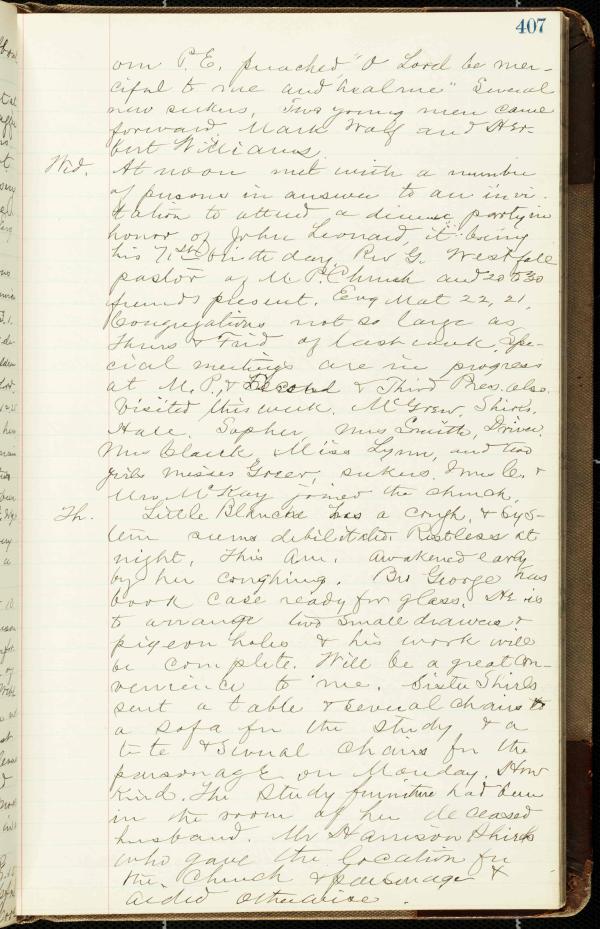 407
our P.E. preached "O Lord be mer-
ciful to me and heal me" Several
new seekers, Two young men came
forward Mark Wolf and Her-
bert Williams.
Wed. At noon met with a number
of persons in answer to an invi-
tation to attend a dinner party in
honor of John Leonard, it being
his 71st birth day, Rev G. Westfall
pastor of M.P. Church and 20 to 30
friends present. Eve Mat 22, 21,
Congregations not so large as
Thurs & Frid of last week, Spe-
cial meetings are in progress
at M.P., & Second & Third Pres. also.
Visited this week. McGrew, Shirls,
Hale. Sopher, Mrs Smith, Driver,
Mrs Clark, Miss Lynn, and two
girls Misses Greer, seekers. &
Mrs McKay joined the church.
Th. Little Blanche has a cough, & sys-
tem seems debilitated Restless at
night. This am. awakened early
by her coughing. Bro George has
book case ready for glass. He is
to arrange two small drawers &
pigeon holes & his work will
be complete. Will be a great con-
venience to me. Sister Shirls
sent a table & several chairs &
a sofa for the study & a
tete & several chairs for the
parsonage on Monday. How
kind. The study furniture had been
in the room of her deceased
husband. Mr Harrison Shirls
who gave the location for
the Church & parsonage &
aided otherwise.